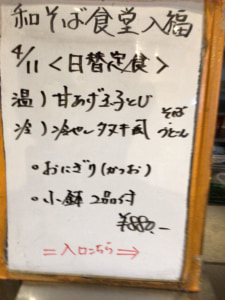 和そば食堂 入福
4/11 <日替定食>
温) 甘あげ玉子とじ
冷) 冷やしタヌキ風
そば
うどん
・おにぎり(かつお)
・小鉢 2品付
¥880.-
⇒入口こちら⇒